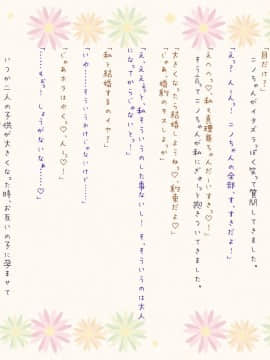 「目だけ？」
ニノちゃんがイタズラっぽく笑って質問してきました。
「えっ？ん～ん、！ニノちゃんの全部、す、すきだよ！」
「えへへっ♡、私も真理亜ちゃんだーいすきっ♡！」
そう言ってニノちゃんが私にぎゅっと抱きついてきました。
「大きくなったら結婚しようねっ♡、約束だよ♡」
「じゃあ、婚約のキスしよっか」
「え、ええっと、私そういうのした事ないし…そ、そういうのは大人
になってからじゃないとっ！」
「私と結婚するのイヤ？」
「いや……そういうわけじゃないけど……」
「じゃあホラはやく♡、んーっ♡！」
「……もぉっ！しょうがないなぁ……♡」
いつか二人の子供が大きくなった時、お互いの子に孕ませて